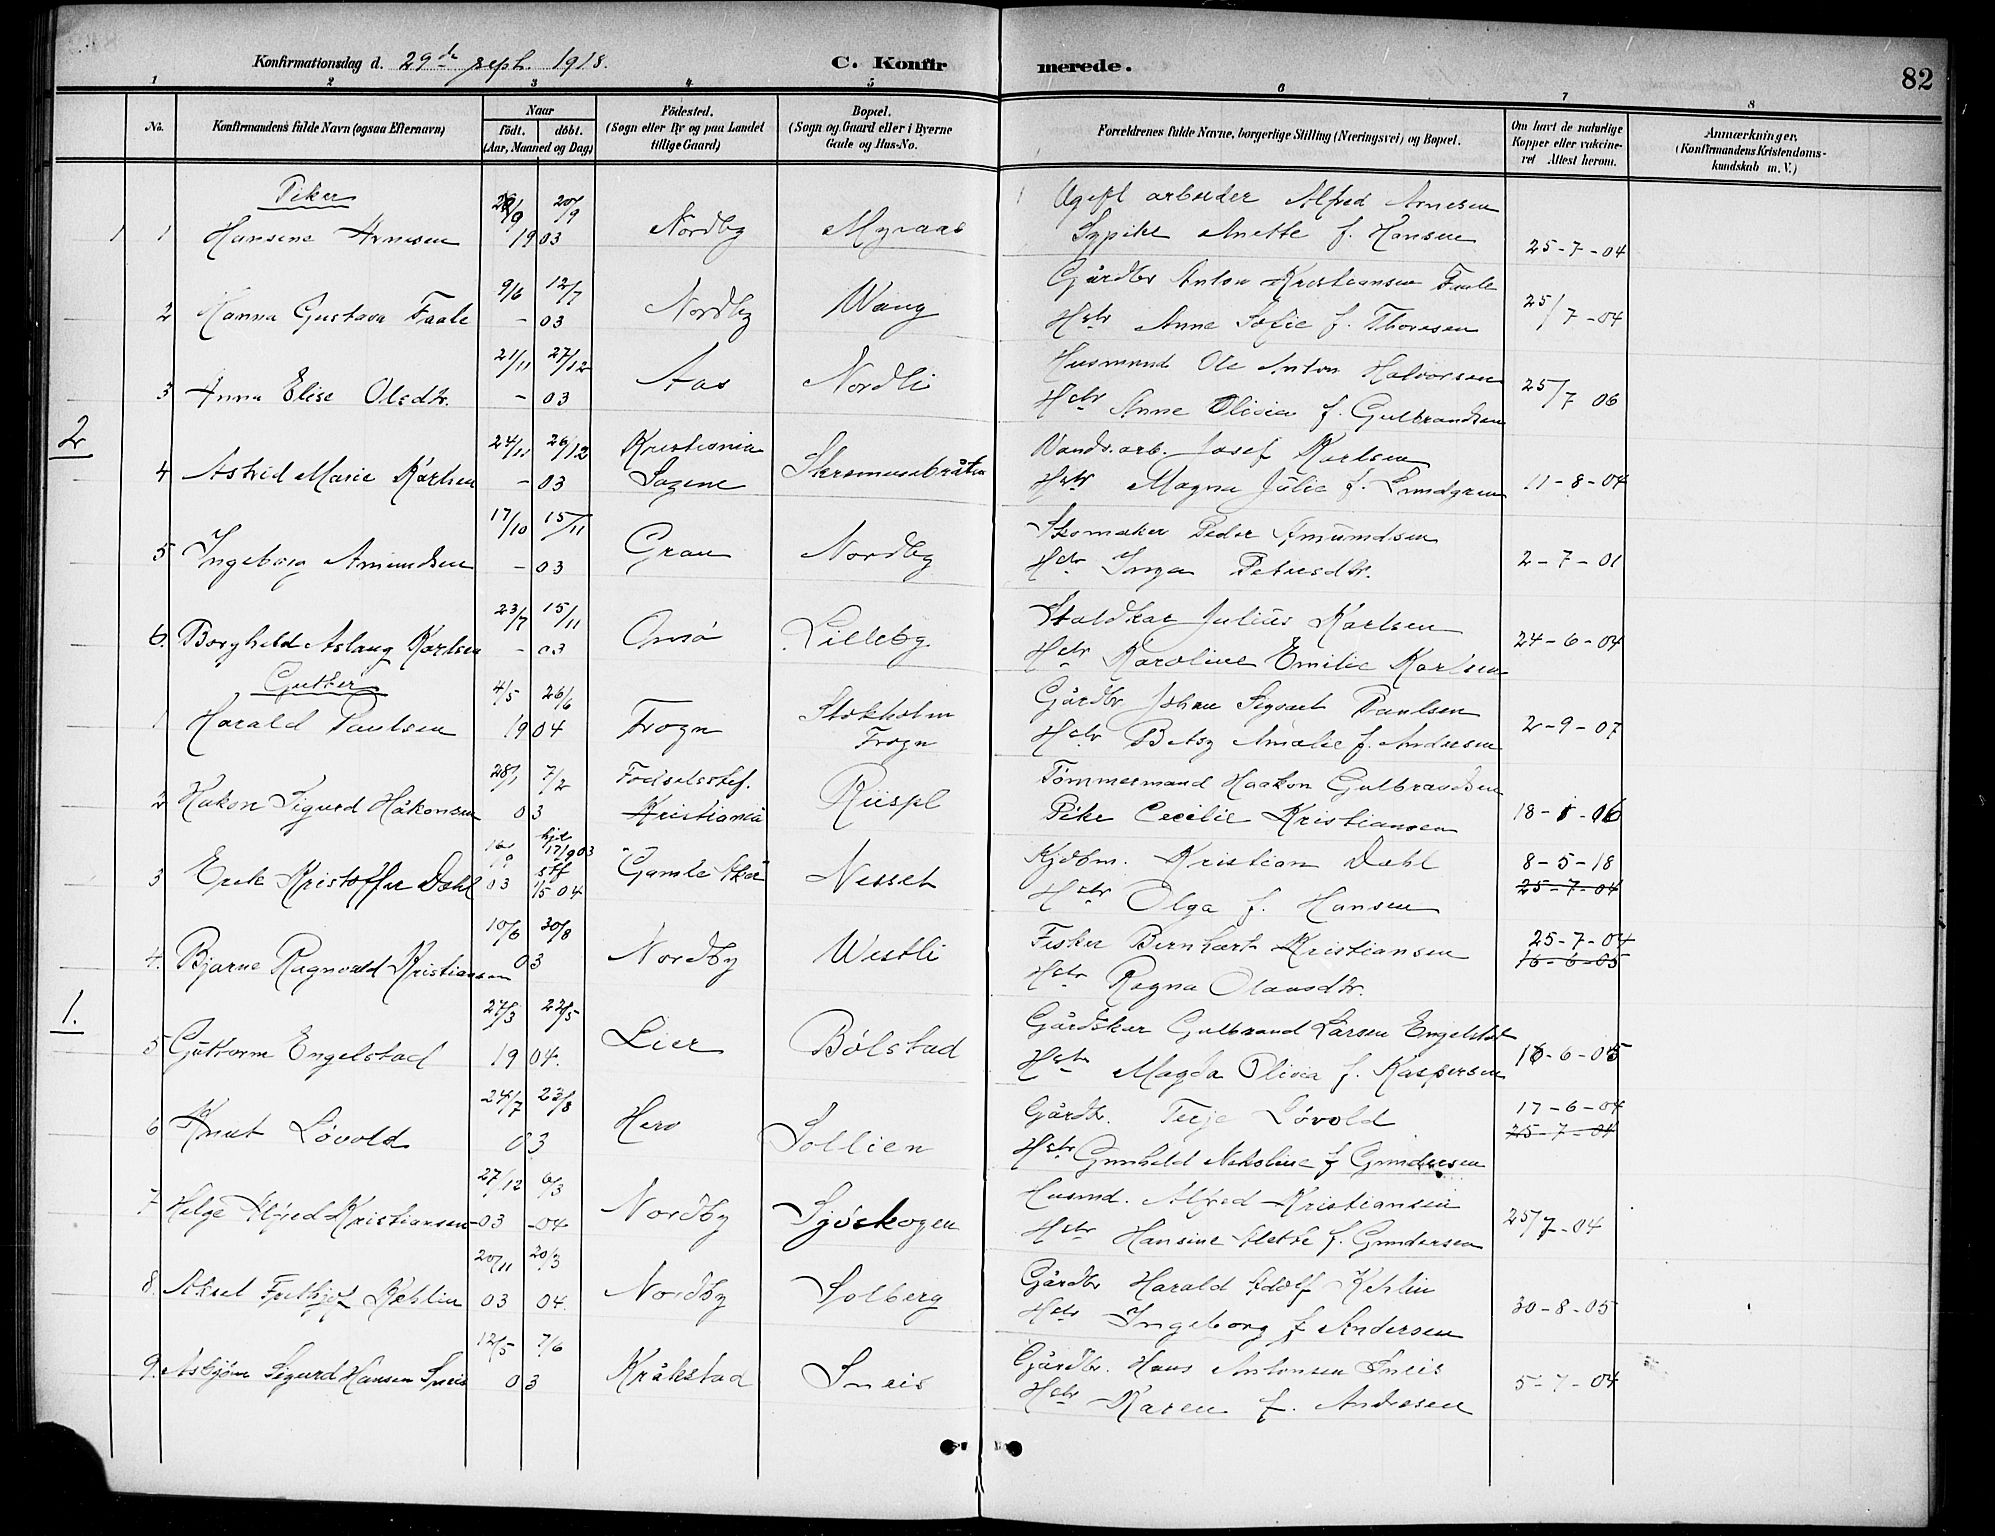 Konfirmationsdag d. 29de sept. 1918. C. Konfirmerede. 82
1 2 3 4 5 6 7 8
No.
Konfirmandens fulde Navn (ogsaa Efternavn)
Naar
födt. döbt.
(Aar, Maaned og Dag)
Födested.
(Sogn eller By og paa Landet
tillige Gaard)
Bopæl.
(Sogn og Gaard eller i Byerne
Gade og Hus-No.
Forældrenes fulde Navne, borgerlige Stilling (Næringsvei) og Bopæl.
Om havt de naturlige
Kopper eller vakcine-
ret Attest herom.
Anmærkninger.
(Konfirmandens Kristendoms-
kundskab m. V.)
Piker
1 1 Hansine Arnesen /9 20/9 1903 Nordby Myraas
Ugift arbeider Alfred Arnesen
Sypike Anette f. Hansen 25-7-04
2 Hanna Gustava Faale 9/6 12/7 - 03 Nordby Wang
Gårdbr Anton Kristiansen Faale
Hstr Anne Sofie f. Thoresen 25/7-04
3 Anna Elise Olsdtr. 21/11 27/12 - 03 Aas Nordli
Husmand Ole Anton Halvorsen
Hstr Anne Olivia f. Gulbrandsen 25/7 06
2
4 Astrid Marie Karlsen 24/11 26/12 - 03 Kristiania Sagene Skremmesbråten
Vandv.arb. Josef Karlsen
Hstr Magna Julie f. Lundgren 11-8-04
5 Ingeborg Amundsen 17/10 15/11 - 03 Gran Nordby
Skomaker Peder Amundsen
Hstr Inga Petersdtr. 2-7-01
6. Borghild Aslaug Karlsen 23/7 15/11 - 03 Onsø Lilleby
Staldkar Julius Karlsen
Hstr Karoline Emilie Karlsen 24-6-04
Gutter
1 Harald Paulsen 4/5 26/6 1904 Frogn Stokholm Frogn
Gårdbr Johan Sigvart Paulsen
Hstr Betsy Amalie f. Andersen 2-9-07
2 Hakon Sigurd Håkonsen 28/1 7/2 03 Fødselsstif. Kristiania Riispl
Tømmermand Haakon Gulbrandsen
Pike Cecilie Kristiansen 18- -06
3 Erik Kristoffer Dahl /9 03 hjd 17/9 03 stf 1/5 04 Gamle Aker Nesset
Kjøbm. Kristian Dahl 8-5-18
Hstr Olga f. Hansen 25-7-04
4. Bjarne Ragnvald Kristiansen 10/6 30/8 03 Nordby Westli
Fisker Bernhart Kristiansen 25-7-04
Hstr Ragna Olausdtr. 16-6-05
1.
5 Guttorm Engelstad 27/3 22/5 1904. Lier Bølstad
Gårdskar Gulbrand Larsen Engelstad
Hstr Magda Olivia f. Kaspersen 16-6-05
6 Knut Løvold 24/7 23/8 03 Herø Sollien
Gårdbr. Terje Løvold 17-6-04
Hstr Gunhild Nikoline f Gundersen 25-7-04
7. Helge Alfred Kristiansen 27/12 6/3 -03 -04 Nordby Sjøskogen
Husmd. Alfred Kristiansen
Hstr Hansine Alette f. Gundersen 25/7-04
8. Aksel Fridtjof Kehlin 20/11 20/3 03 04. Nordby Solberg
Gårdbr Harald Adolf Kehlin
Hstr Ingeborg f Andersen 30-8-05
9. Asbjørn Sigurd Hansen Sneis 12/5 7/6 03 Kråkstad Sneis
Gårdbr. Hans Antonsen Sneis
Hstr Karen f. Andresen 5-7-04